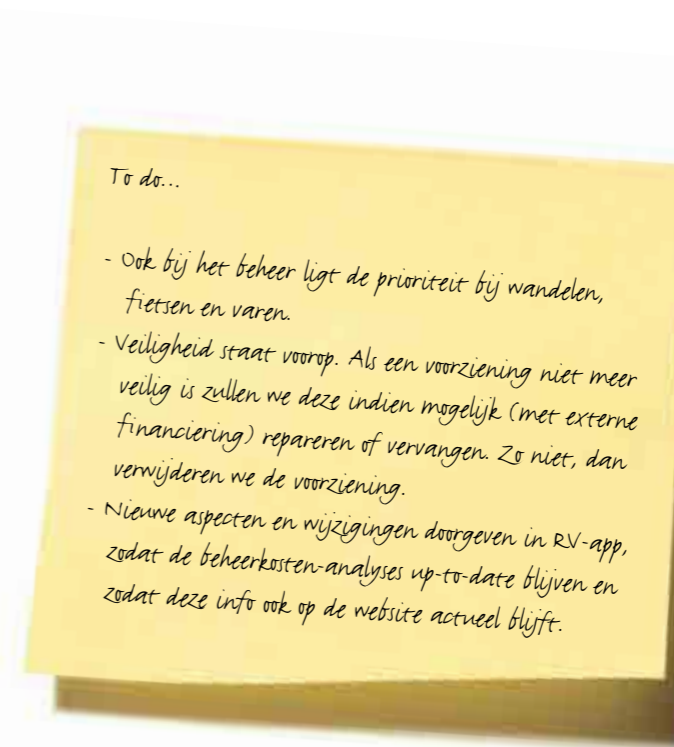 To do...
- Ook bij het beheer ligt de prioriteit bij wandelen,
fietsen en varen.
- Veiligheid staat voorop. Als een voorziening niet meer
veilig is zullen we deze indien mogelijk (met externe
financiering) repareren of vervangen. Zo niet, dan
verwijderen we de voorziening.
- Nieuwe aspecten en wijzigingen doorgeven in RV-app,
zodat de beheerkosten-analyses up-to-date blijven en
zodat deze info ook op de website actueel blijft.